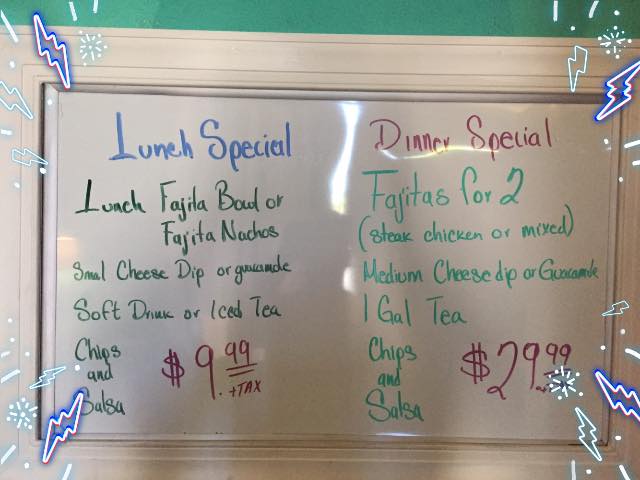 Lunch Special
Lunch Fajita Bowl or
Fajita Nachos
Small Cheese Dip or guacamole
Soft Drink or Iced Tea
Chips
and
Salsa
$9.99
+TAX
Dinner Special
Fajitas for 2
(steak chicken or mixed)
Medium Cheese dip or Guacamole
1 Gal Tea
Chips
and
Salsa
$29.99